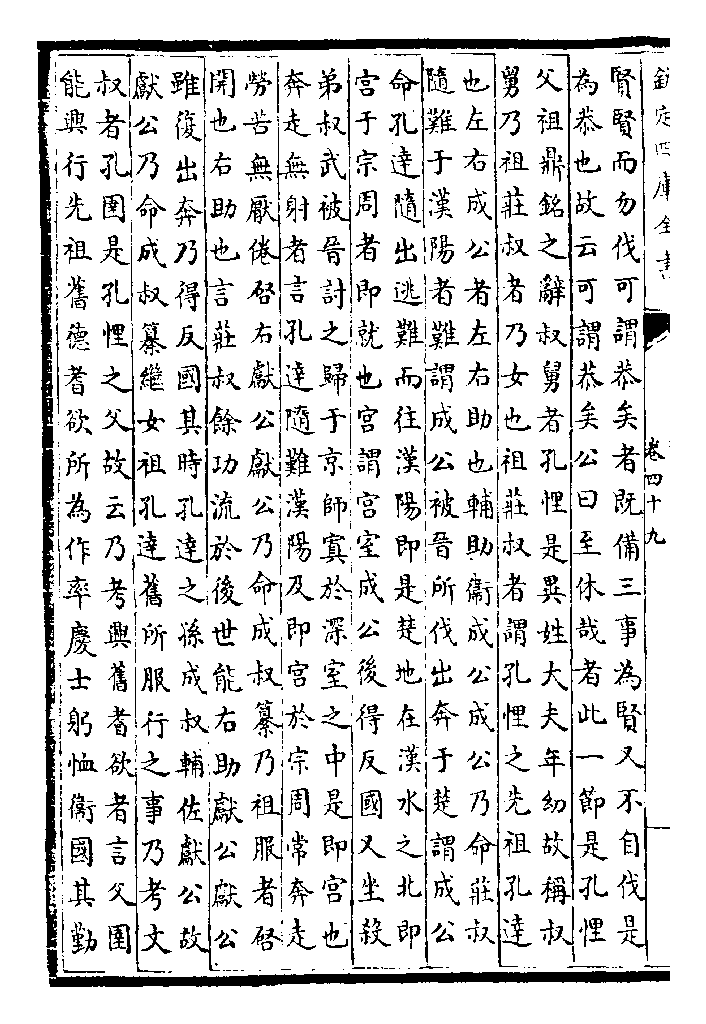 欽定四庫全書
卷四十九
賢賢而勿伐可謂恭矣者既備三事為賢又不自伐是
為恭也故云可謂恭矣公曰至休哉者此一節是孔悝
父祖鼎銘之辭叔舅者孔悝是異姓大夫年幼故稱叔
舅乃祖莊叔者乃女也祖莊叔者謂孔悝之先祖孔達
也左右成公者左右助也輔助衞成公成公乃命莊叔
隨難于漢陽者難謂成公被晉所伐出奔于楚謂成公
命孔達隨出逃難而往漢陽即是楚地在漢水之北即
宮于宗周者即就也宮謂宮室成公後得反國又坐殺
弟叔武被晉討之歸于京師寘於深室之中是即宮也
奔走無射者言孔達隨難漢陽及即宮於宗周常奔走
勞苦無厭倦啓右獻公獻公乃命成叔纂乃祖服者啓
開也右助也言莊叔餘功流於後世能右助獻公獻公
雖復出奔乃得反國其時孔達之孫成叔輔佐獻公故
獻公乃命成叔纂繼女祖孔達舊所服行之事乃考文
叔者孔圉是孔悝之父故云乃考興舊耆欲者言父圉
能興行先祖舊德耆欲所為作率慶士躬恤衞國其勤